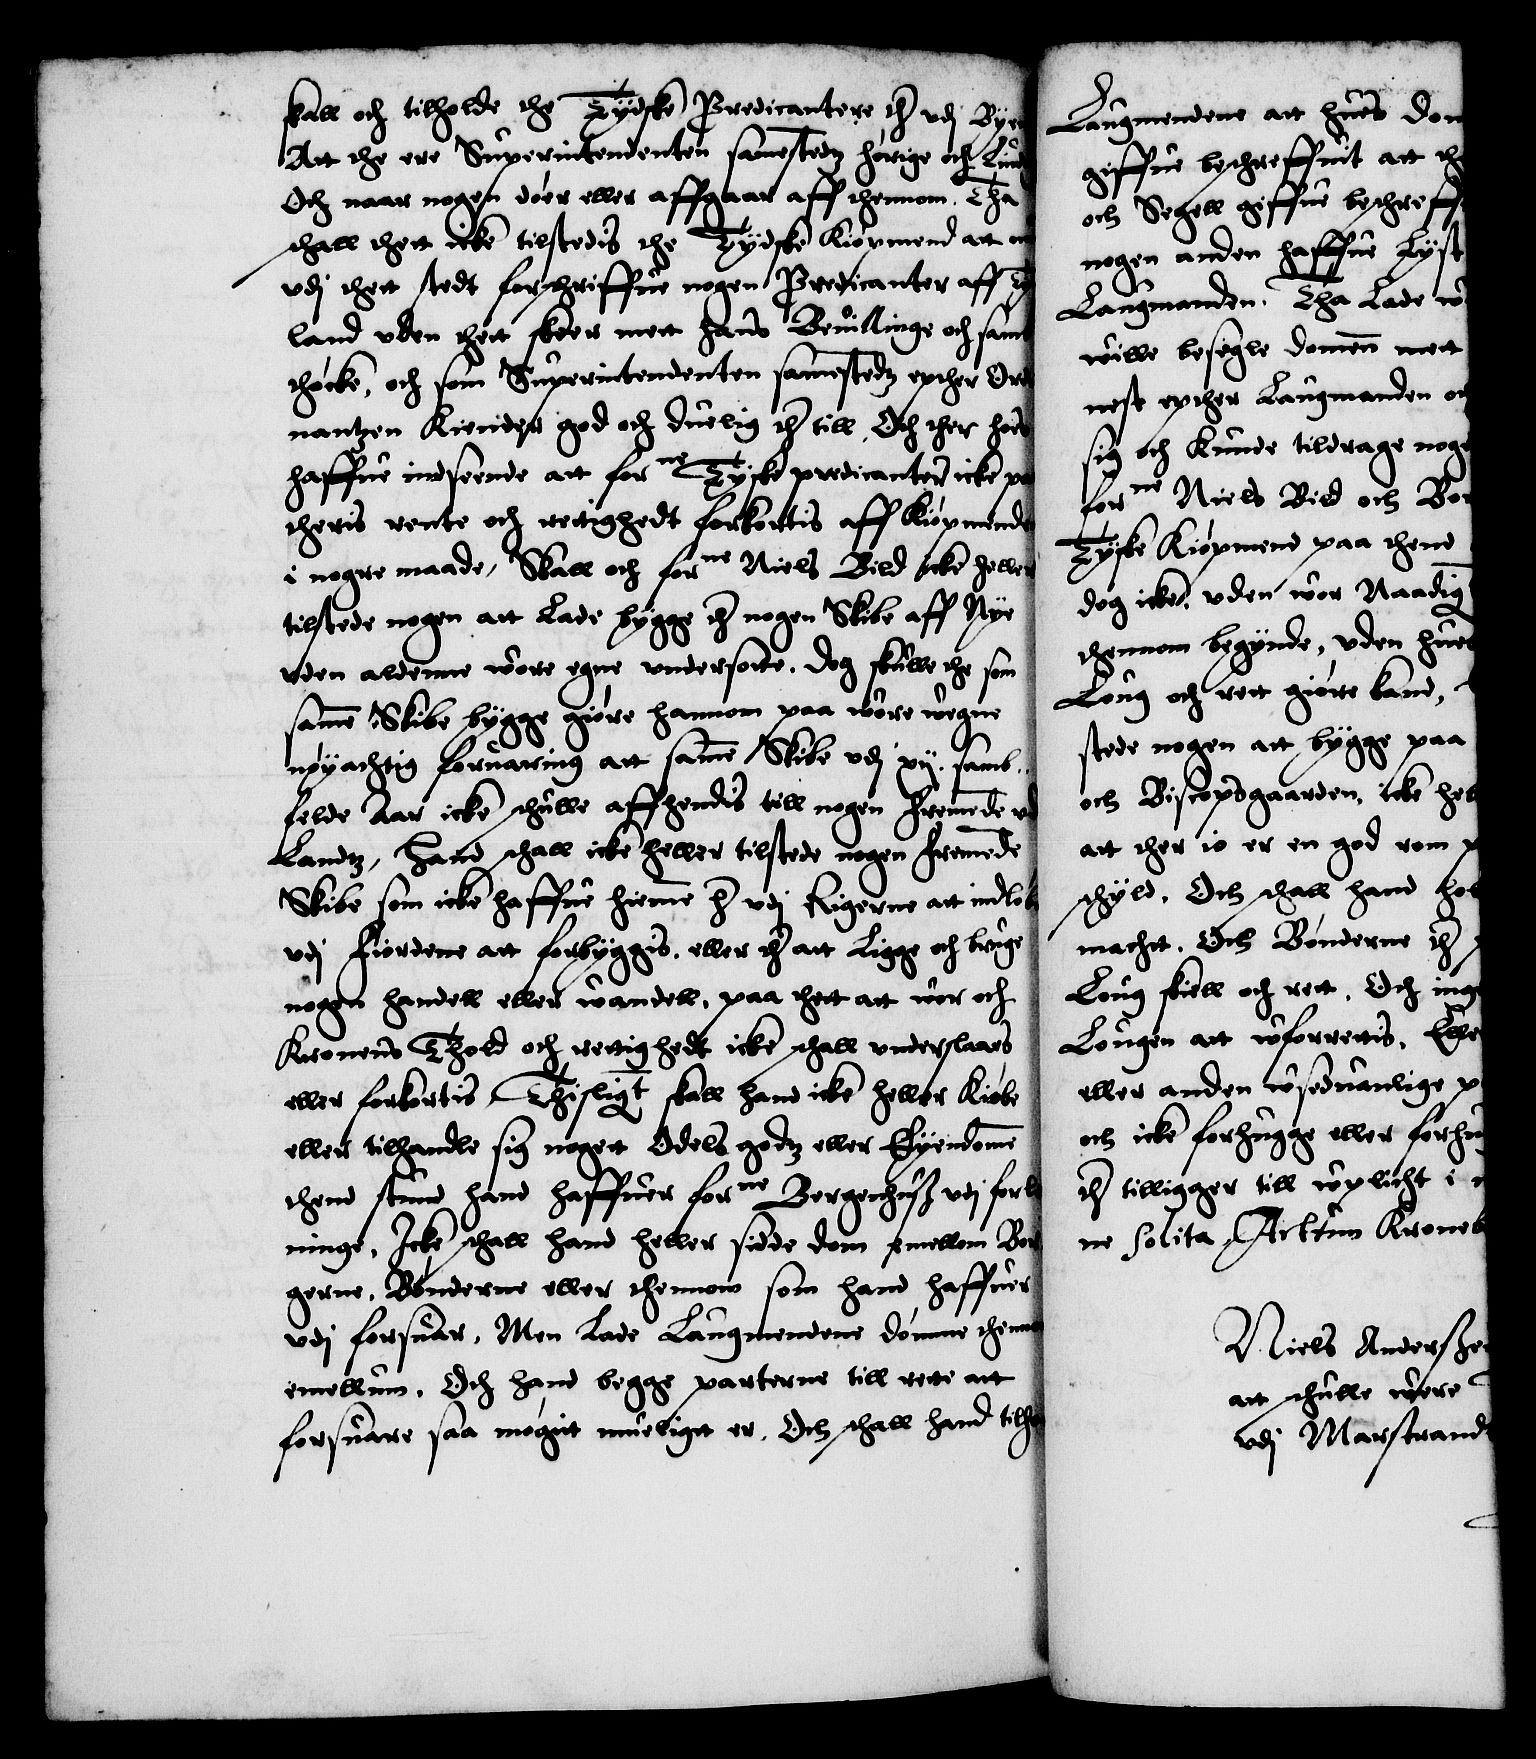 skall och tilholde the Tydske Predicantere ther udj Byen
Att the ere Superintendenten samestedz hørige och Lydi
Och naar nogen døer eller affgaar aff thennom. Tha
schall thett icke tilstedis the Tydske Kiøpmend att
udj thett stedt forschriffue nogen Predicanter aff Ty
land uden thett skeer mett hans Beuillinge och sam
thøcke, och som Superintendenten samestedz epther Ord
nantzen Kiender god och duelig ther till, Och ther hoes
haffue indseende att forne Tyske predicanter icke paa
theris rente och rettighedt forkortis aff Kiøpmende
i nogre maade, Skall och forne Niels Bild icke heller
tilstede nogen att Lade bygge ther nogen Skibe aff Nye
uden aldenne wore egne undersotte. Dog skulle the som
same Skibe bygge giøre hannom paa wore wegne
nøyachtig foruaring att same Skibe udj xij. samb..
felde Aar icke schulle affhendis till nogen fremede ud
Landz, Hand schall icke heller tilstede nogen fremede
Skibe som icke haffue hieme her udj Rigerne att indløbe
udj Fiordene att forbyggis, eller ther att Ligge och bruge
nogen handell eller wandell, paa thett att wor och
Kronens Thold och rettighedt icke schall underslaaes
eller forkortis, Thisligt skall hand icke heller Kiøbe
eller tilhandle sig nogett Odels godz eller Eyendome
thend stund hand haffuer forne Bergenhuss udj forle
ninge, Icke schall hand heller sidde dom emellom Bor
gerne, Bønderne eller thennom som hand haffuer
udj forsuar, Men Lade Laugmendene dømme thennom
emellum, Och hand begge parterne till rette att
forsuare saa møgit mueligt er, Och schall hand tilho
Laugmendene att hues dom
giffue beschreffuit att th
och Segell giffue beschreff
nogen anden haffue Lyst
Laugmanden. Tha Lade w
wille besegle domen mett
nest epther Laugmanden oc
sig och Kunde tildrage noge
forne Niels Bild och Bor
Tyske Kiøpmend paa thend
dog icke, uden wor Naadig
thennom begynde, uden hues
Loug och rett giøre kand,
stede nogen att bygge paa
och Biscopsgaarden, icke hel
att ther io er en god rom
schyld. Och schall hand hol
macht. Och Bønderne ther
Loug skiell och rett, Och inge
Lougen att uforrettis, Eller
eller anden usedwanlige p
och icke forhugge eller forhu
ther tilligger till uplicht i
ne solita, Actum Kroneb
Niels Anderssen
att schulle were
udj Marstrand